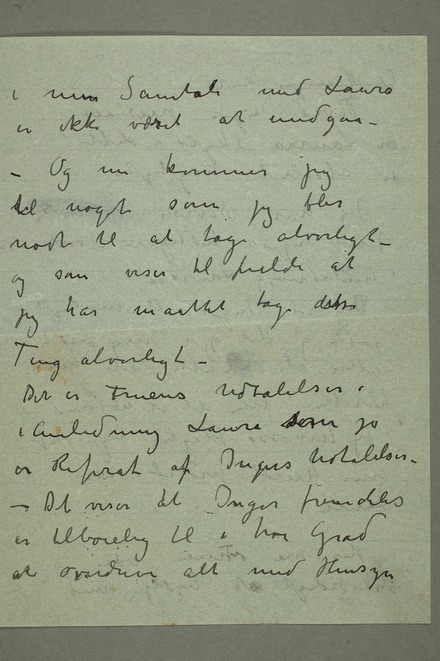 i min Samtale med Laura
er ikke været at undgaa –
– Og nu kommer jeg
til noget som jeg blev
nødt til at tage alvorligt –
og som viser til fulde at
jeg har maattet tage disse
Ting alvorligt –
Det er Fruens Udtalelser i
i Anledning Laura som jo
er Referat af Ingers Udtalelser –
– Det viser at Inger fremdeles
er tilbøielig til i høi Grad
at overdrive alt med Hensyn